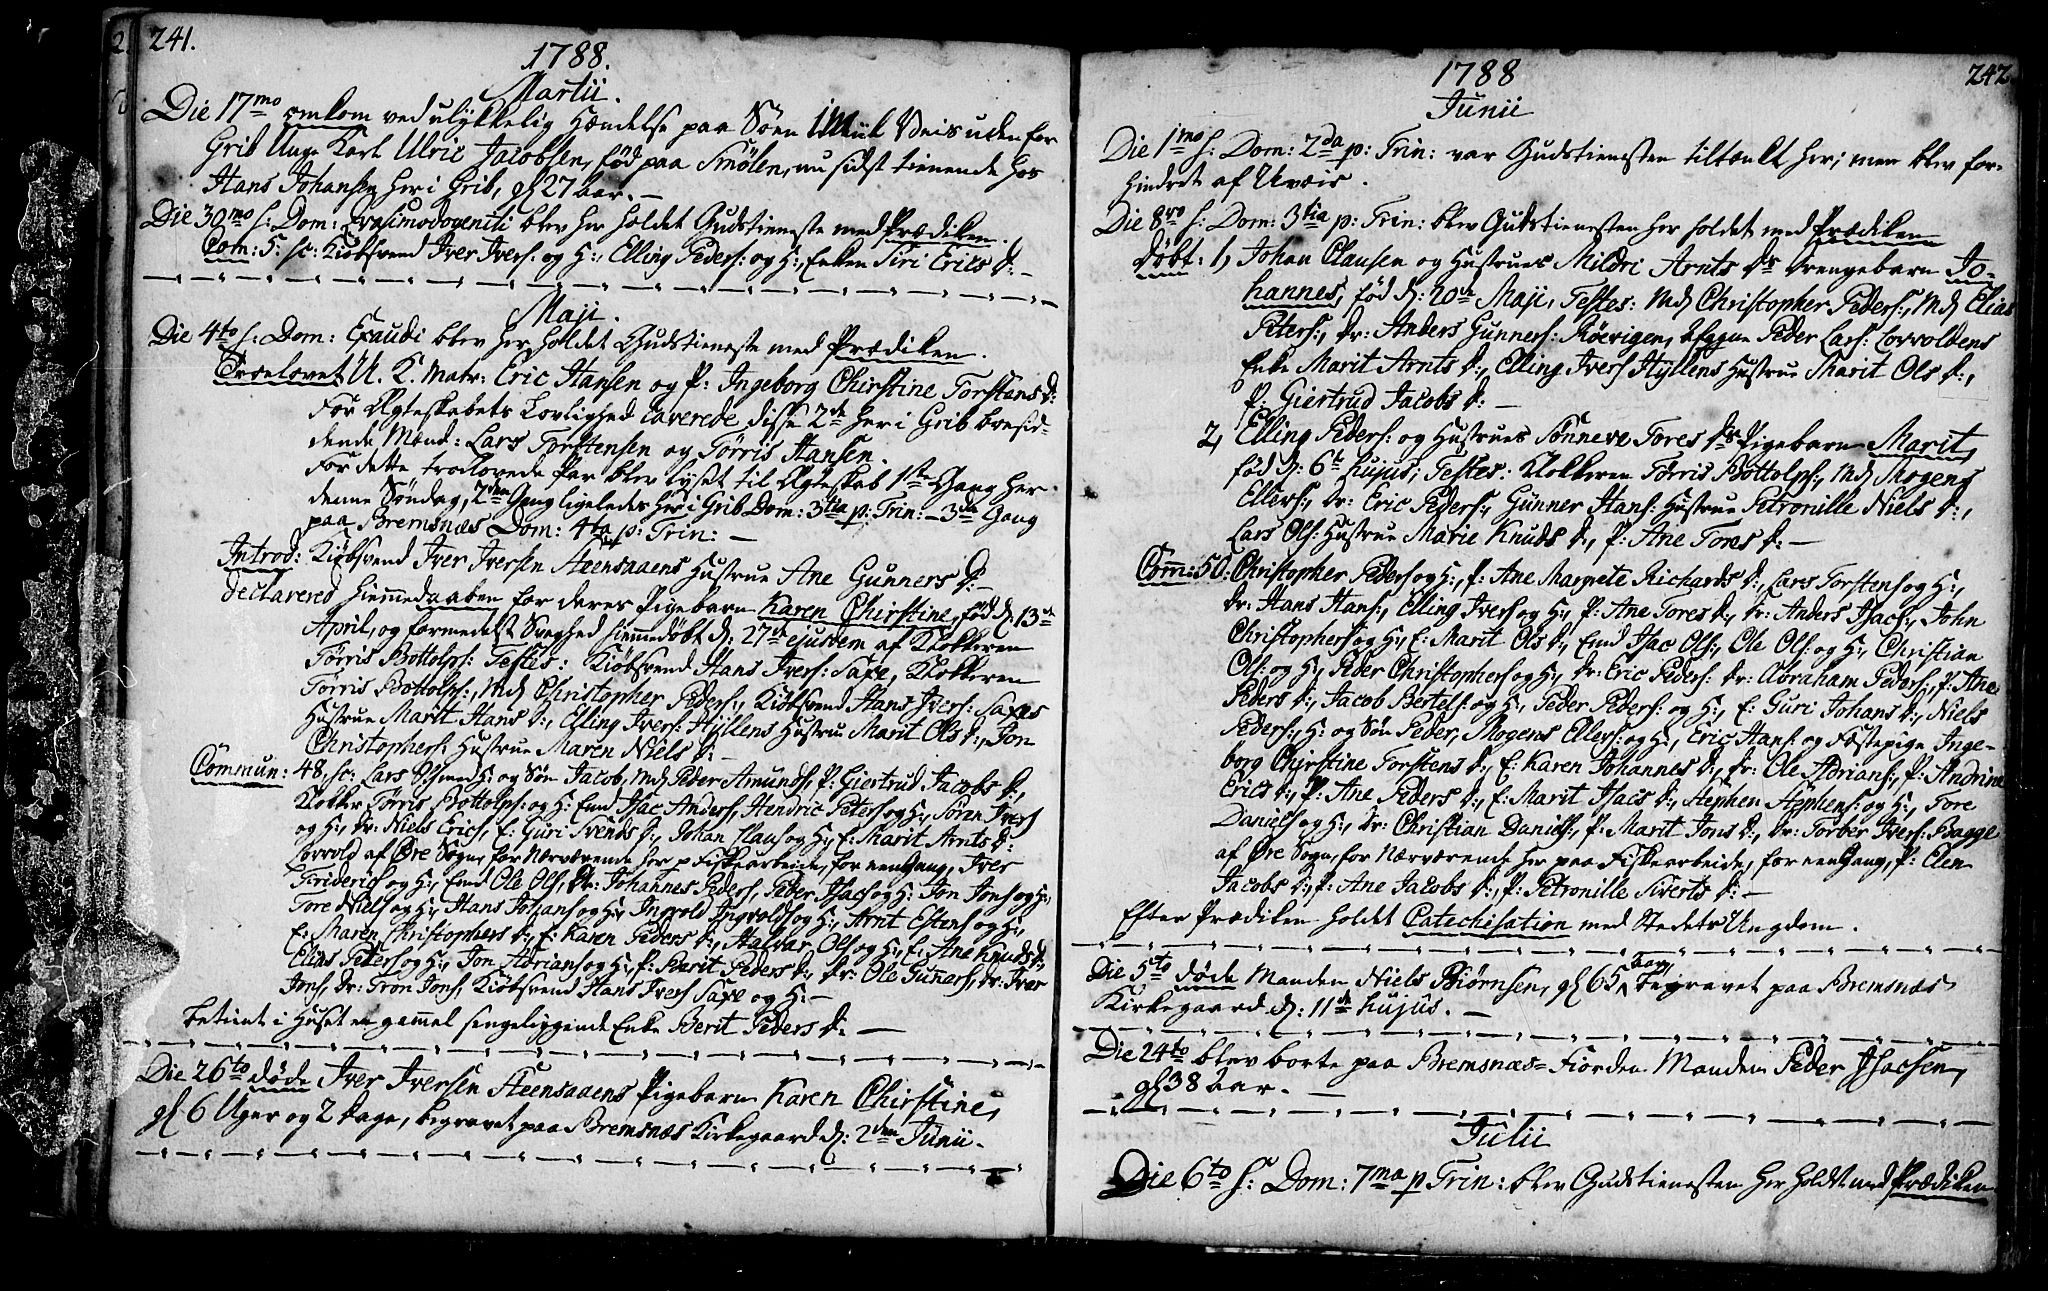 241.
1788.
Martii.
Die 17mo omkom ved ulykkelig Hændelse paa Søen i Uveis udenfor
Grib Unge Karl Ulric Jacobsen, fød paa Smølen, nu sidst tienende hos
Hans Johansen her i Grib, gl 27 Aar. –
Die 30mo s: Dom: Qvasimodogeniti blev her holdet Gudstieneste med Prædiken.
Com: 5. sc: Kiøbsvend Iver Ivers: og H:, Elling Peders: og H:, Enken Siri Erics D: –
Maji.
Die 4to s: Dom: Exaudi blev her holdet Gudstieneste med Prædiken.
Troelovet U. K. Matr: Eric Hansen og P: Ingeborg Chirstine Torstens D:
For Ægteskabets Lovlighed caverede disse 2de her i Grib boesid-
dende Mænd: Lars Torstensen og Tørris Hansen.
For dette trolovede Par blev lyset til Ægteskab 1ste Gang her
denne Søndag, 2den Gang ligeledes her i Grib Dom: 3tia p: Trin: – 3die Gang
paa Bremsnæs Dom: 4ta p: Trin: –
Introd: Kiøbsvend Iver Iversen Steensaaens Hustrue Ane Gunners D: –
declarered Hiemmedaaben for deres Pigebarn Karen Chirstine, fød d: 13de
April, og formedelst Svaghed hiemmedøbt d: 27de ejusdem af Klokkeren
Tørris Bottolps: Testes: Kiøbsvend Hans Ivers: Saxe, Klokkeren
Tørris Bottolps:, Md Christopher Peders:, Kiøbsvend Hans Ivers: Saxes
Hustrue Marit Hans D:, Elling Ivers: Hyllens Hustrue Marit Ols D:, Jon
Christophers: Hustrue Maren Niels D: –
Commun: 48. sc: Lars Ols med H: og Søn Jacob, Md Peder Amunds, P: Giertrud Jacobs D:,
Klokker Tørris Bottolps: og H: Emd Isac Anders, Hendric Peters og H:, Søren Ivers
og H:, Dr: Niels Erics, E: Guri Svends D:, Johan Claus og H:, E: Marit Arnts D:
Lorvold af Øre Sogn, for Nærværende her p Fiskearbeide, for een Gang, Iver
Frideries og H:, Emd Ole Ols, Dr: Johannes Peders, Peder Isacs og H: Jon Jons og H:,
Tore Niels og H:, Hans Johans og H:, Ingvold Ingvolds og H:, Arnt Estens og H:,
E: Maren Christophers D:, E: Karen Peders D:, Halvar Ols og H:, E: Ane Knuds D:,
Elias Peters og H:, Jon Adrians og H:, P: Berit Peders D:, Dr: Ole Gunners, Dr: Iver
Jons, Dr: Tron Jons, Kiøbsvend Hans Ivers Saxe og H: –
betient i Huset en gammel sengeliggende Enke Berit Peders D: –
Die 26to døde Iver Iversen Steensaaens Pigebarn Karen Chirstine,
gl 6 Uger og 2 Dage, begravet paa Bremsnæs Kirkegaard d: 2den Junii.
242
1788
Junii
Die 1mo s: Dom: 2da p: Trin: var Gudstienesten tiltænkt her; men blev for-
hindret af Uveir.
Die 8vo s: Dom: 3tia p: Trin: blev Gudstienesten her holdet med Prædiken
Døbt: 1, Johan Clausen og Hustrues Mildri Arnts Ds Drengebarn Jo-
hannes, fød d: 20de Maji, Testes: Md Christopher Peders:, Md Elias
Peters:, Dr: Anders Gunners: Røevigen, Afgagne Peder Lars: Lorvoldens
Enke Marit Arnts D:, Elling Ivers Hyllens Hustrue Marit Ols D:,
P: Giertrud Jacobs D: –
2, Elling Peders: og Hustrues Sønneve Tores Ds Pigebarn Marit,
fød d: 6te hujus; Testes: Klokkeren Tørris Bottolps:, Md Mogens
Ellers:, Dr: Eric Peders:, Gunner Hans: Hustrue Petronille Niels D:,
Lars Ols: Hustrue Marie Knuds D:, P: Ane Tores D: –
Comm: 50: Christopher Peders og H:, P: Ane Margrete Richards D:, Lars Torstens og H:,
Dr: Hans Hans:, Elling Ivers og H:, P: Ane Tores D:, Dr: Anders Isacs:, John
Christophers og H:, E: Marit Ols D:, Emd Isac Ols:, Ole Ols: og H:, Christian
Ols: og H:, Peder Christophers og H:, Dr: Eric Peders: Dr: Abraham Peders:, P: Ane
Peders D:, Jacob Bertels: og H:, Peder Peders: og H:, E: Guri Johans D:, Niels
Peders:, H: og Søn Peder, Mogens Ellers: og H:, Eric Hans: og Fæstepige Inge-
borg Chirstine Torstens D:, E: Karen Johannes D:, Dr: Ole Adrians:, P: Andrine
Erics D:, P: Ane Peders D:, E: Marit Isacs D:, Stephen Stephens: og H:, Tore
Daniels og H:, Dr: Christian Daniels:, P: Marit Jons D:, Dr: Torber Ivers: Bagge
af Øre Sogn, for Nærværende her paa Fiskearbeide, for een Gang, P: Elen
Jacobs D:, P: Ane Jacobs D:, P: Petronille Siverts D: –
Efter Prædiken holdet Catechisation med Stedets Ungdom.
Die 5to døde Manden Niels Biørnsen, gl 65 Aar, begravet paa Bremsnæs
Kirkegaard d: 11te hujus. –
Die 24to blev borte paa Bremsnæs-Fiorden Manden Peder Isacsen,
gl 38 Aar. –
Julii
Die 6to s: Dom: 7ma p Trin: blev Gudstienesten her holdt med Prædiken